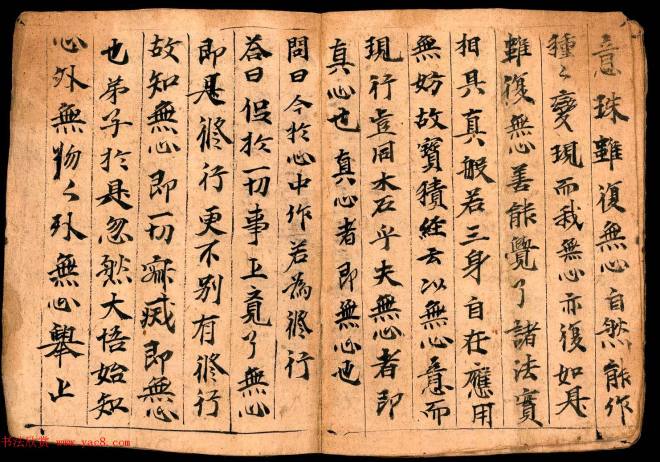 意珠雖復無心自然能作
種〻變現而我無心亦復如是
雖復無心善能覺了諸法實
相具真般若三身自在應用
無妨故寶積經云以無心意而
現行豈同木石乎夫無心者即
真心也真心者即無心也
問曰今於心中作若為修行
荅曰但於一切事上覓了無心
即是修行更不別有修行
故知無心即一切寂滅即無心
也弟子於是忽然大悟始知
心外無物〻外無心舉止
书法欣赏 www.yac8.com